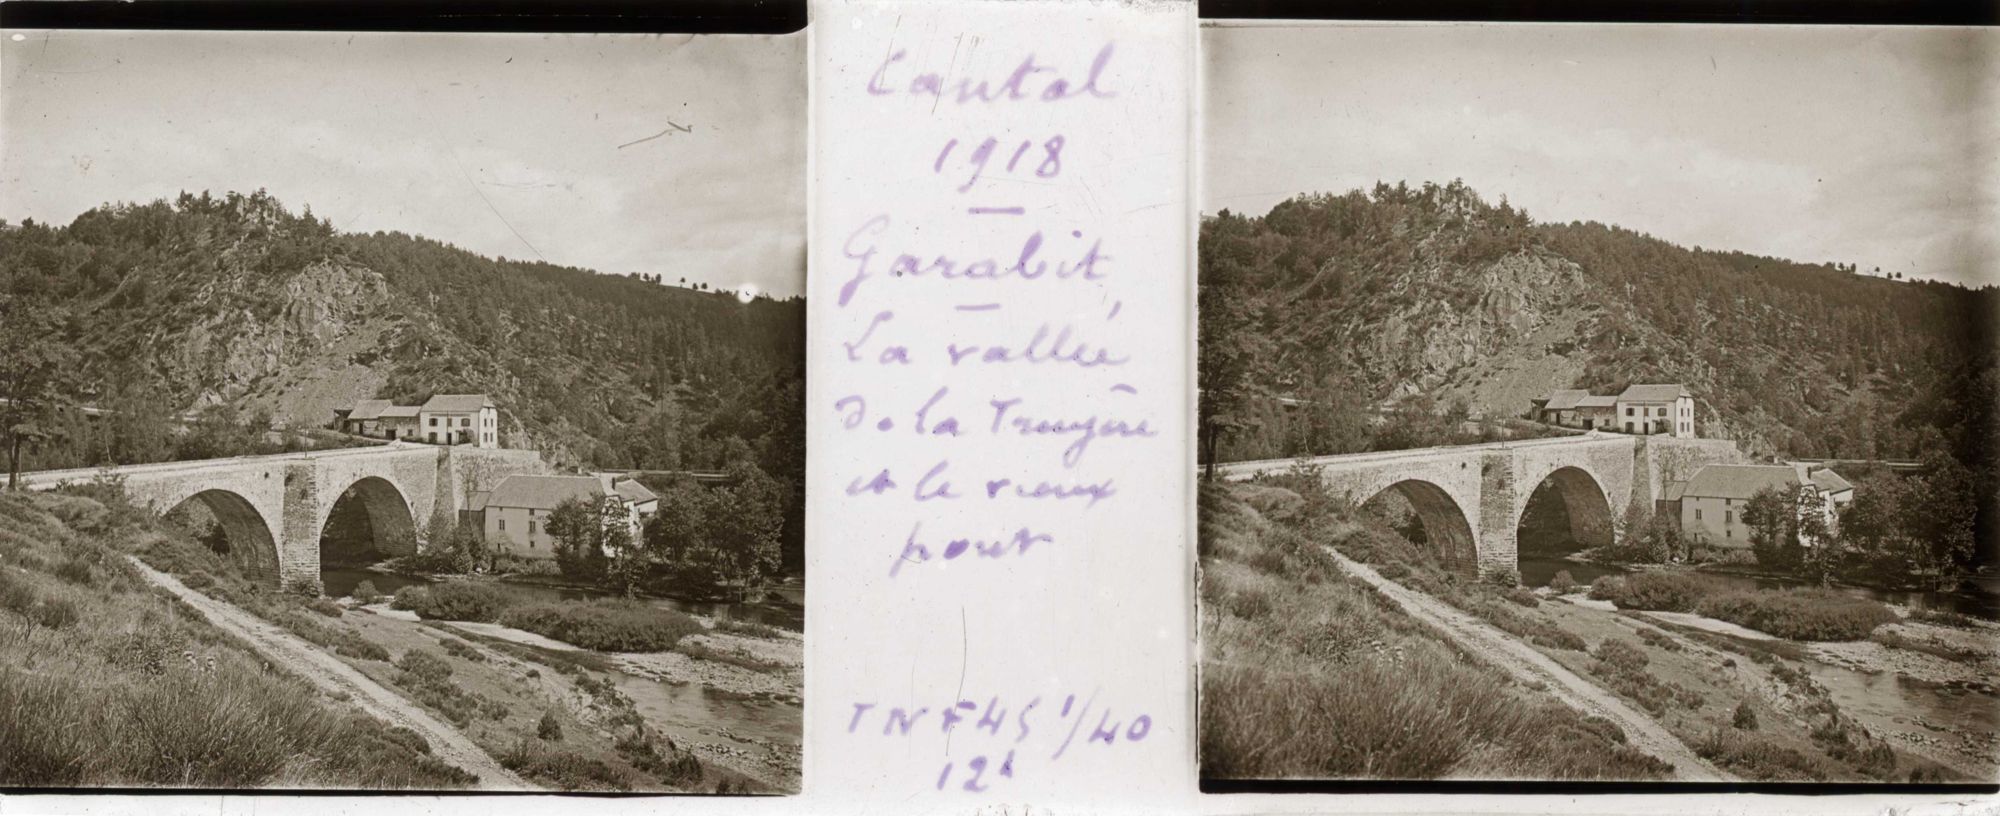 Cantal
1918
Garabit
La vallée
de la Truyère
et le vieux
pont
TNF45 1/40
12h